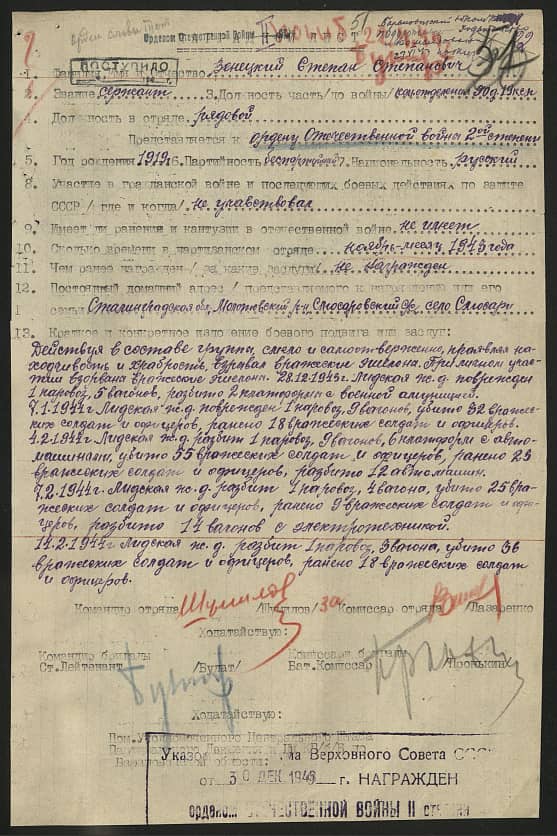 Орденом Отечественной Войны II
51
ПОСТУПИЛО
1. Фамилия, имя и отчество Зенецкий Степан Степанович
2. Звание сержант 3. Должность часть/до войны/
4. Должность в отряде. рядовой
Представляется к ордену Отечественной войны 2ой степени
5. Год рождения 1919г 6. Партийность беспартийный 7. Национальность русский
8. Участие в гражданской войне и последующих боевых действиях по защите
СССР /где и когда/ не участвовал
9. Имеет ли ранения и кантузии в отечественной войне не имеет
10. Сколько времени в партизанском отряде ноябрь-месяц 1943 года
11. Чем ранее награжден /за какие заслуги/ не награжден
12. Постоянный домашний адрес /представляемого к награждению или его
семьи Сталинградская обл, Молотовский р-н
13. Краткое и конкретное изложение боевого подвига или заслуг:
Действуя в составе группы, смело и самоотверженно, проявляя на-
ходчивость и храбрость, взрывал вражеские эшелона. При личном учас-
тии взорвана вражеские эшелона. 28.12-1943г. Лидская ж.д. поврежден
1 паровоз, 5 вагонов, разбито 2 платформы с военной амуницией.
7.1-1944г Лидская ж.д. поврежден 1 паровоз, 9 вагонов, убито 32 вражес-
ких солдат и офицеров, ранено 18 вражеских солдат и офицеров.
4.2-1944г. Лидская ж.д. разбит 1 паровоз, 9 вагонов, 6 платформ с авто-
машинами, убито 55 вражеских солдат и офицеров, ранено 23
вражеских солдат и офицеров, разбито 12 автомашин.
7.2.1944г. Лидская ж.д. разбит 1 паровоз, 4 вагона, убито 25 вра-
жеских солдат и офицеров, ранено 9 вражеских солдат и офи-
церов, разбито 14 вагонов с электротехникой.
14.2-1944г Лидская ж.д. разбит 1 паровоз, 3 вагона, убито 36
вражеских солдат и офицеров, ранено 18 вражеских солдат
и офицеров.
Командир отряда Шумилов /Шумилов/ За Комиссар отряда /Лазаренко
Ходатайствую:
Командир бригады Комиссар бригады
Ст.Лейтенант /Булат/ Бат.Комиссар /Пронькин/
Ходатайствую:
Указом Президиума Верховного Совета СССР
от 30 ДЕК 1948 г. НАГРАЖДЕН
орденом ОТЕЧЕСТВЕННОЙ ВОЙНЫ II степени